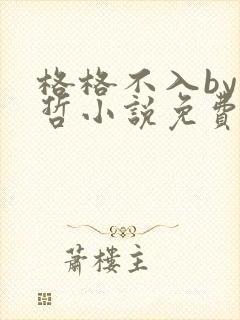 格格不入by
哲小說免費
蕭樓主